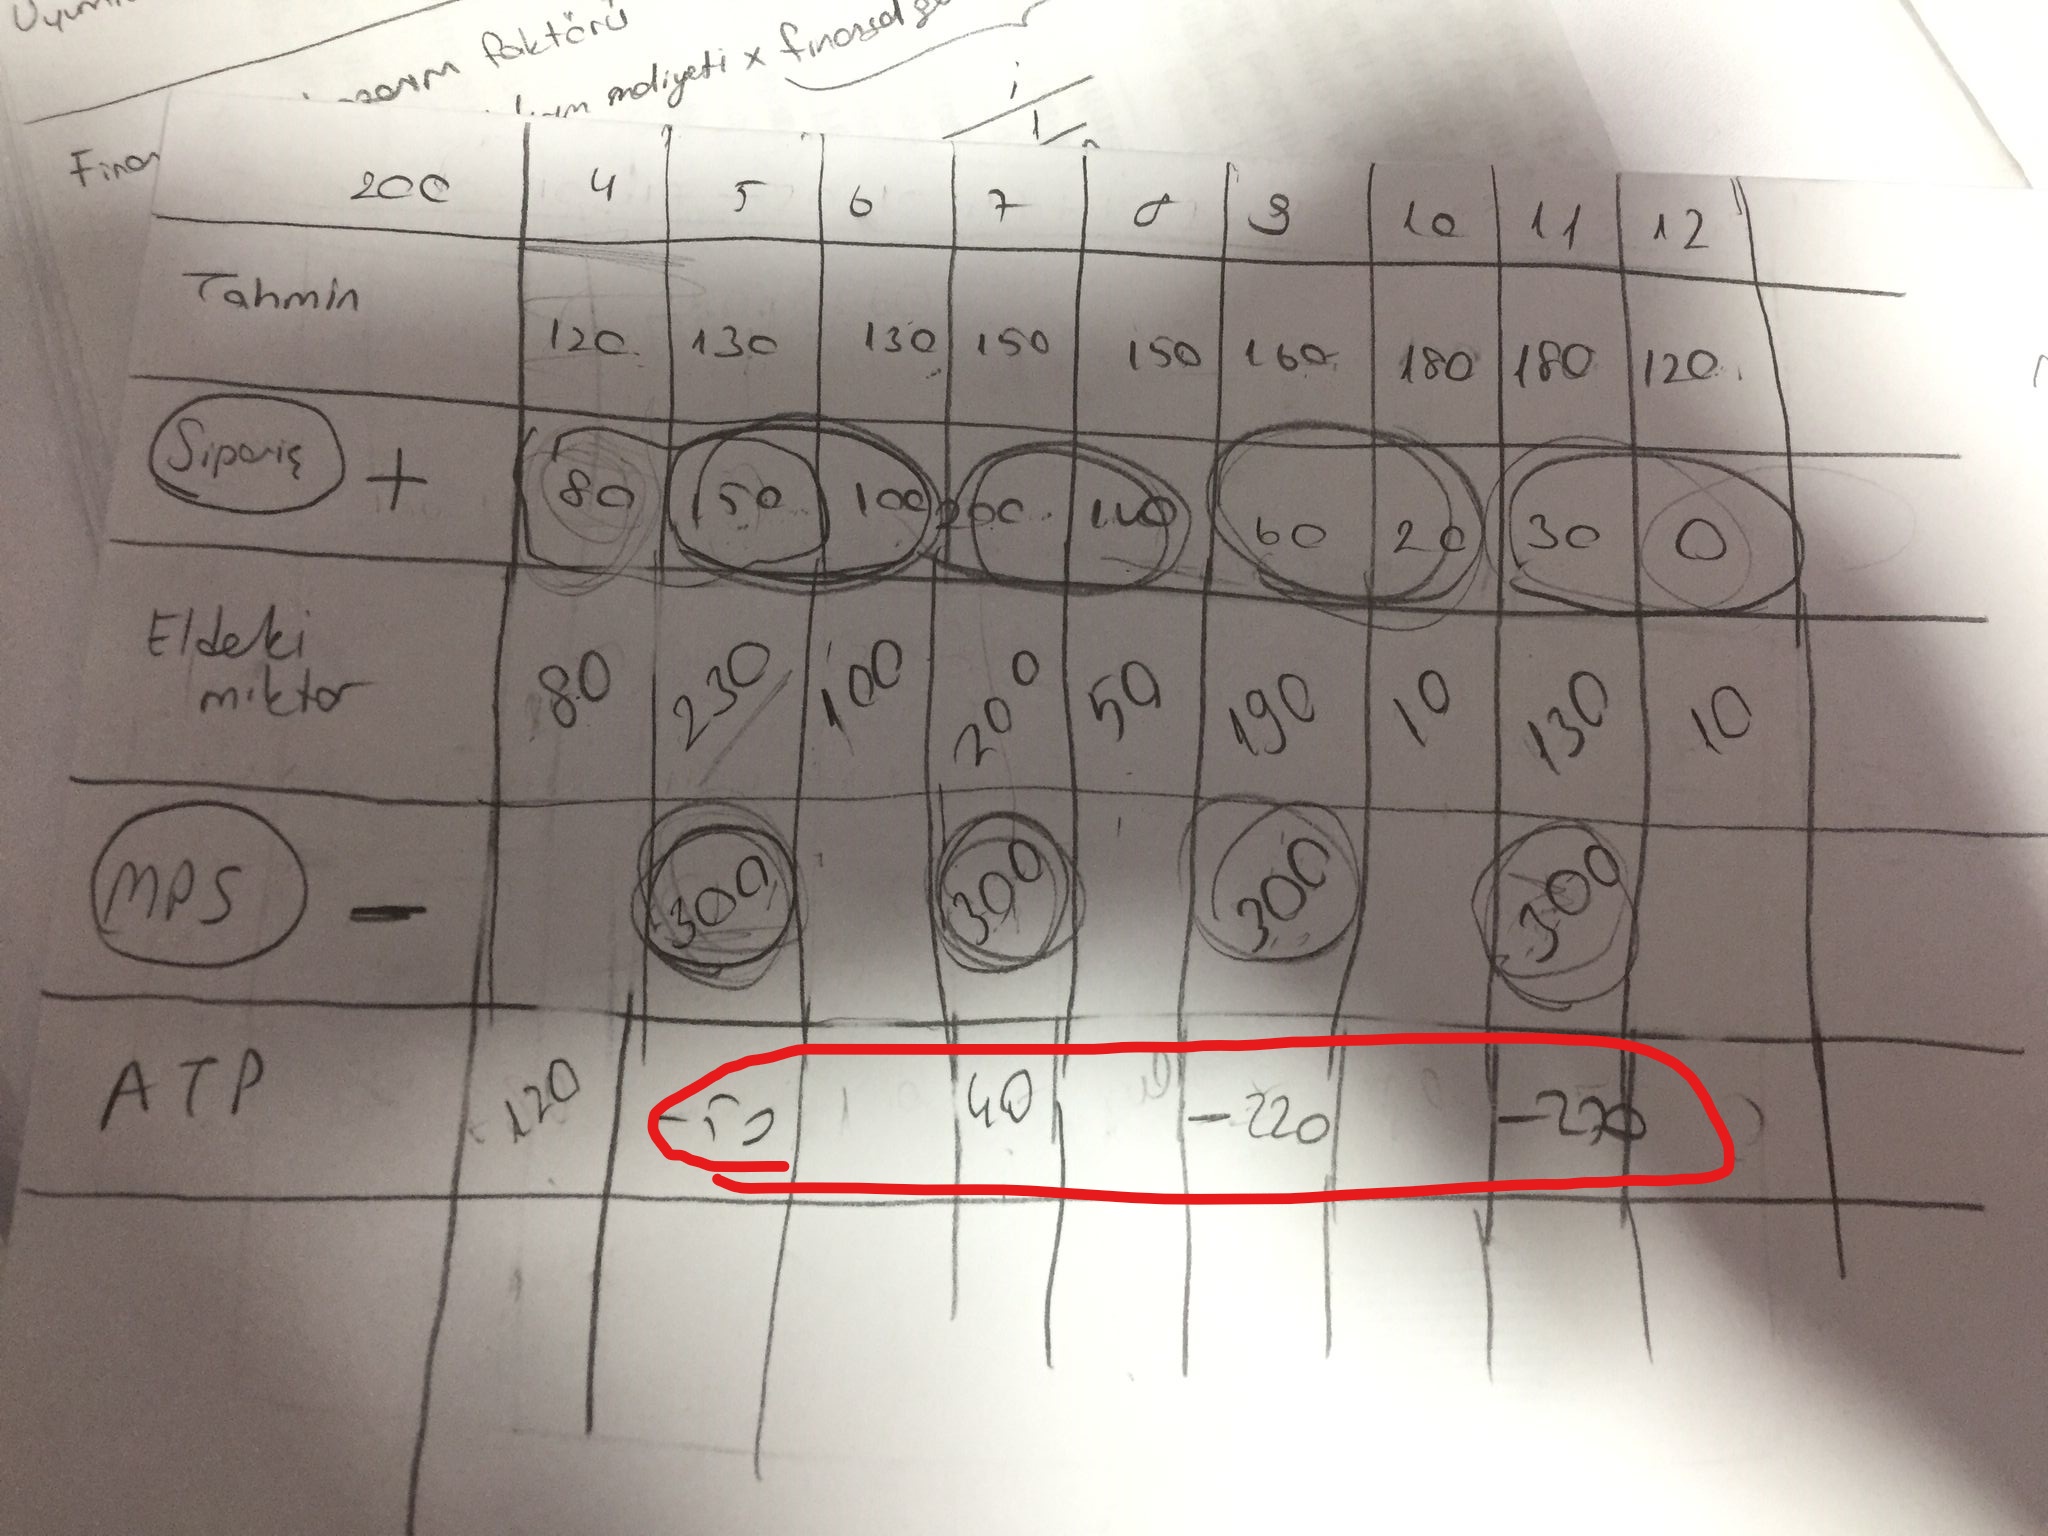 faktörü
maliyeti x finansal
i
1
200 4 5 6 7 8 9 10 11 12
Tahmin
120 130 130 150 150 160 180 180 120
Sipariş + 80 150 100 200 140 60 20 30 0
Eldeki
miktar
80 230 100 200 50 190 10 130 10
MPS - 300 300 300 300
ATP 120 -50 40 -220 -270